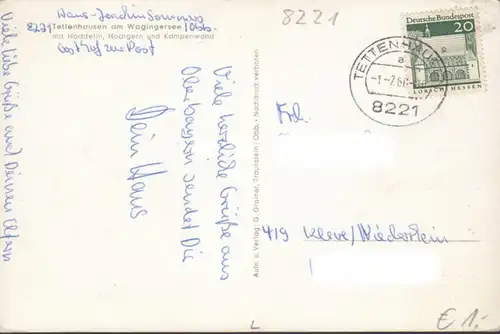 8221
Hans-Joachim
8221 Tettenhausen am Wagingersee / Obb.
mit Hochfelln, Hochgern und Kampenwand
Gasthof zur Post
Viele herzliche Grüße aus
Oberbayern sendet Dir
Dein Hans
Viele liebe Grüße auch Deinen Eltern
Aufn. u. Verlag: G. Grainer, Traunstein / Obb. - Nachdruck verboten
Deutsche Bundespost
20
LORSCH/HESSEN
TETTENHAUSEN
a
-1.-7.66
8221
Frl.
419 Kleve/Niederrhein
L
€ 1,-